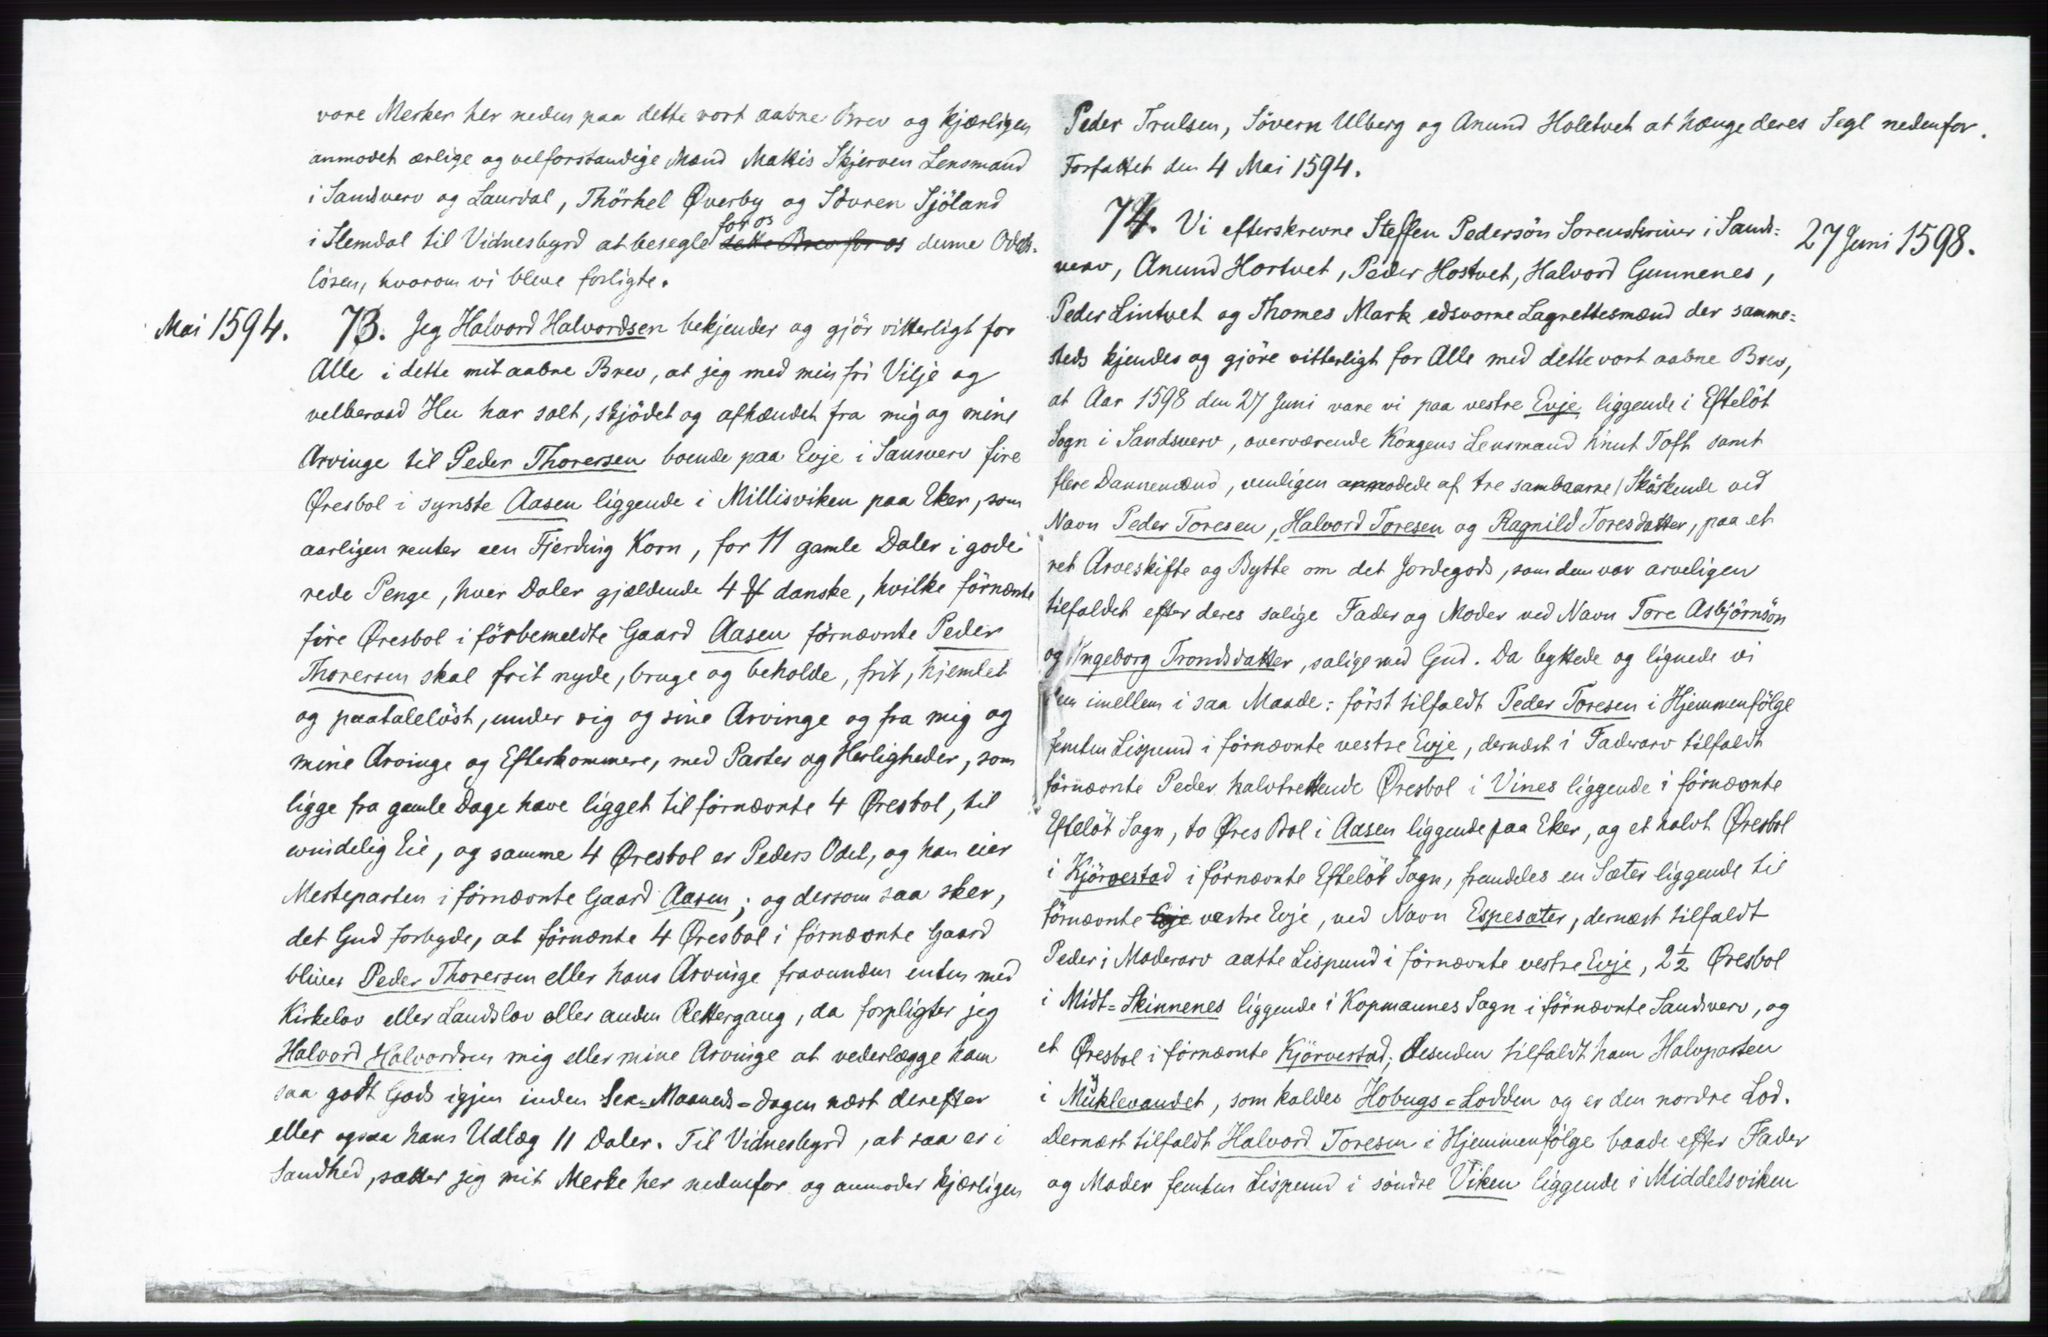 vore Merker her neden paa dette vort aabne Brev og kjærligen
anmodet ærlige og velforstandige Mænd Mattis Skjerven Lensmand
i Sandsverv og Laurdal, Thörkel Øverby og Sövren Sjöland
i Slemdal til Vidnesbyrd at besegle for os dette Brev for os denne Odels-
lösen, hvorom vi bleve forligte.
Mai 1594. 73. Jeg Halvord Halvordsen bekjender og gjör vitterligt for
Alle i dette mit aabne Brev, at jeg med min fri Vilje og
velberaad Hu har solt, skjödet og afhændet fra mig og mine
Arvinge til Peder Thoresen boende paa Evje i Sansverv fire
Øresbol i synste Aasen liggende i Millisviken paa Eker, som
aarligen renter een Fjerding Korn, for 11 gamle Daler i gode
rede Penge, hver Daler gjældende 4 ℔ danske, hvilke förnænte
fire Øresbol i förbemeldte Gaard Aasen förnævnte Peder
Thoresen skal frit nyde, bruge og beholde, frit, hjemlet
og paatalelöst, under sig og sine Arvinge og fra mig og
mine Arvinge og Efterkommere, med Parter og Herligheder, som
ligge fra gamle Dage have ligget til förnævnte 4 Øresbol, til
evindelig Eie, og samme 4 Øresbol er Peders Odel, og han eier
Mesteparten i förnævnte Gaard Aasen; og dersom saa sker,
det Gud forbyde, at förnænte 4 Øresbol i förnævnte Gaard
bliver Peder Thoresen eller hans Arvinge fravunden enten med
Kirkelov eller Landslov eller anden Rettergang, da forpligter jeg
Halvord Halvordsen mig eller mine Arvinge at vederlægge ham
saa godt Gods igjen inden Sex-Maaneds-Dagen næst derefter
eller ogsaa hans Udlæg 11 Daler. Til Vidnesbyrd, at saa er i
Sandhed, sætter jeg mit Merke her nedenfor og anmoder kjærligen
Peder Trulsen, Sövern Ulberg og Anund Holtvet at hænge deres Segl nedenfor.
Forfattet den 4 Mai 1594.
74. Vi efterskrevne Steffen Pedersön Sorenskriver i Sands- 27 Juni 1598.
verv, Anund Hortvet, Peder Hostvet, Halvord Gunnenes,
Peder Lintvet og Thomes Mark edsvorne Lagrettesmænd der samme-
steds kjendes og gjöre vitterligt for Alle med dette vort aabne Brev,
at Aar 1598 den 27 Juni vare vi paa vestre Evje liggende i Eftelöt
Sogn i Sandsverv, overværende Kongens Lensmand Knut Toft samt
flere Dannemænd, venligen anmodede af tre sambaarne Sköskende ved
Navn Peder Toresen, Halvord Toresen og Ragnild Toresdatter, paa et
ret Arveskifte og Bytte om det Jordegods, som dem var arveligen
tilfaldet efter deres salige Fader og Moder ved Navn Tore Asbjörnsön
og Ingeborg Trondsdatter, salige med Gud. Da byttede og lignede vi
dem imellem i saa Maade: först tilfaldt Peder Toresen i Hjemmenfölge
femten Lispund i förnævnte vestre Evje, dernæst i Faderarv tilfaldt
förnævnte Peder halvtrettende Øresbol i Vines liggende i förnævnte
Eftelöt Sogn, to Øres Bol i Aasen liggende paa Eker, og et halvt Øresbol
i Kjörvestad i förnævnte Eftelöt Sogn, fremdeles en Sæter liggende til
förnævnte Evje vestre Evje, ved Navn Espesæter, dernæst tilfaldt
Peder i Moderarv aatte Lispund i förnævnte vestre Evje, 2½ Øresbol
i Midt-Skinnenes liggende i Kopmannes Sogn i förnævnte Sandsverv, og
et Øresbol i förnævnte Kjörvestad; desuden tilfaldt ham Halvparten
i Myklevandet, som kaldes Hobugs-Lodden og er den nordre Lod.
Dernæst tilfaldt Halvord Toresen i Hjemmenfölge baade efter Fader
og Moder femten Lispund i söndre Viken liggende i Middelsviken